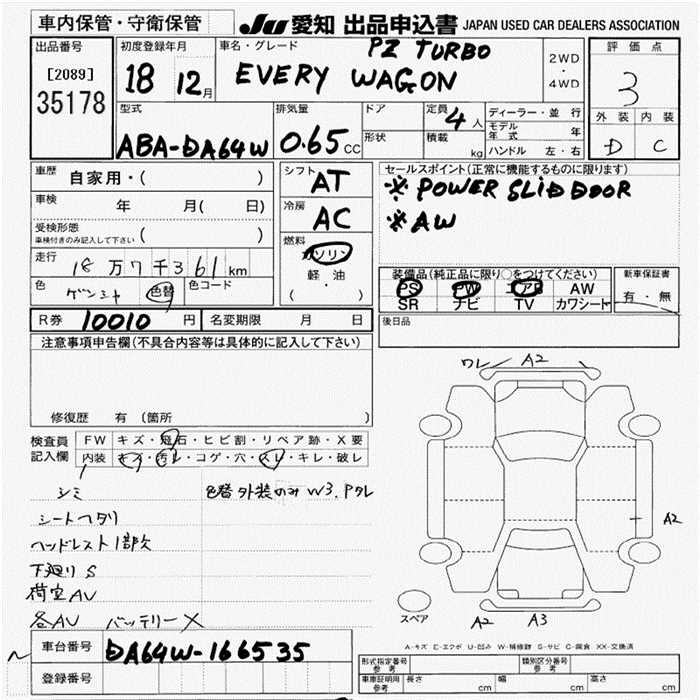 車内保管・守衛保管
JU 愛知 出品申込書 JAPAN USED CAR DEALERS ASSOCIATION
出品番号
[2089]
35178
初度登録年月
18 12月
車名・グレード
PZ TURBO
EVERY WAGON
2WD
・
4WD
評価点
3
外装 内装
D C
型式
ABA-DA64W
排気量
0.65 CC
ドア
形状
定員
4人
積載
kg
ディーラー・並行
モデル年式 年
ハンドル 左・右
車歴
自家用・( )
車検
年 月( 日)
受検形態
車検付きのみ記入して下さい ( )
走行
18万7千361km
色
色替
色コード
シフト
AT
冷房
AC
燃料
ガソリン
軽・油
( ・ )
セールスポイント(正常に機能するものに限ります)
※ POWER SLID DOOR
※ AW
装備品(純正品に限り○をつけてください)
PS PW エアB AW
SR ナビ TV カワシート
新車保証書
有・無
後日品
R券 10010 円 名変期限 月 日
注意事項申告欄(不具合内容等は具体的に記入して下さい)
修復歴 有 (箇所
検査員記入欄
FW キズ・飛石・ヒビ割・リペア跡・X要
内装 キズ・汚レ・コゲ・穴・スレ・キレ・破レ
シミ
色替外装のみ W3. Pタレ
シートヘタリ
ヘッドレスト1部欠
下廻りS
荷室AU
各AU バッテリーX
ワレ A2
A2
A2 A3
スペア
A-キズ E-エクボ U-凹み W-補修跡 S-サビ C-腐食 XX-交換済
車台番号
DA64W-166535
登録番号
形式指定番号
参考
類別区分番号
参考
車庫証明用
参考
長さ cm 幅 cm 高さ cm